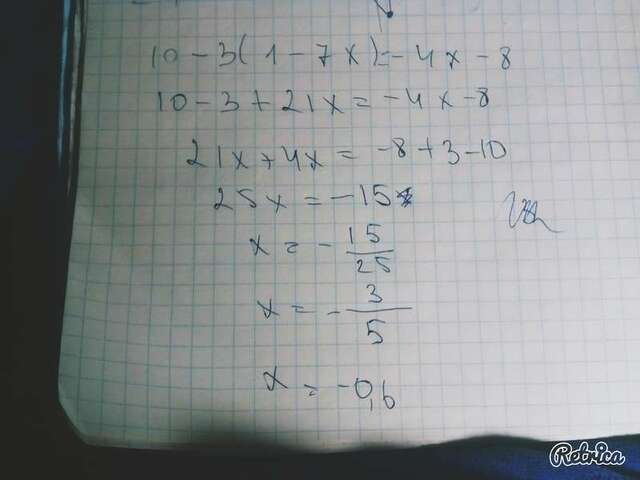 10-3(1-7x)=-4x-8
10-3+21x=-4x-8
21x+4x=-8+3-10
25x=-15
x=-15/25
x=-3/5
x=-0,6
Retrica